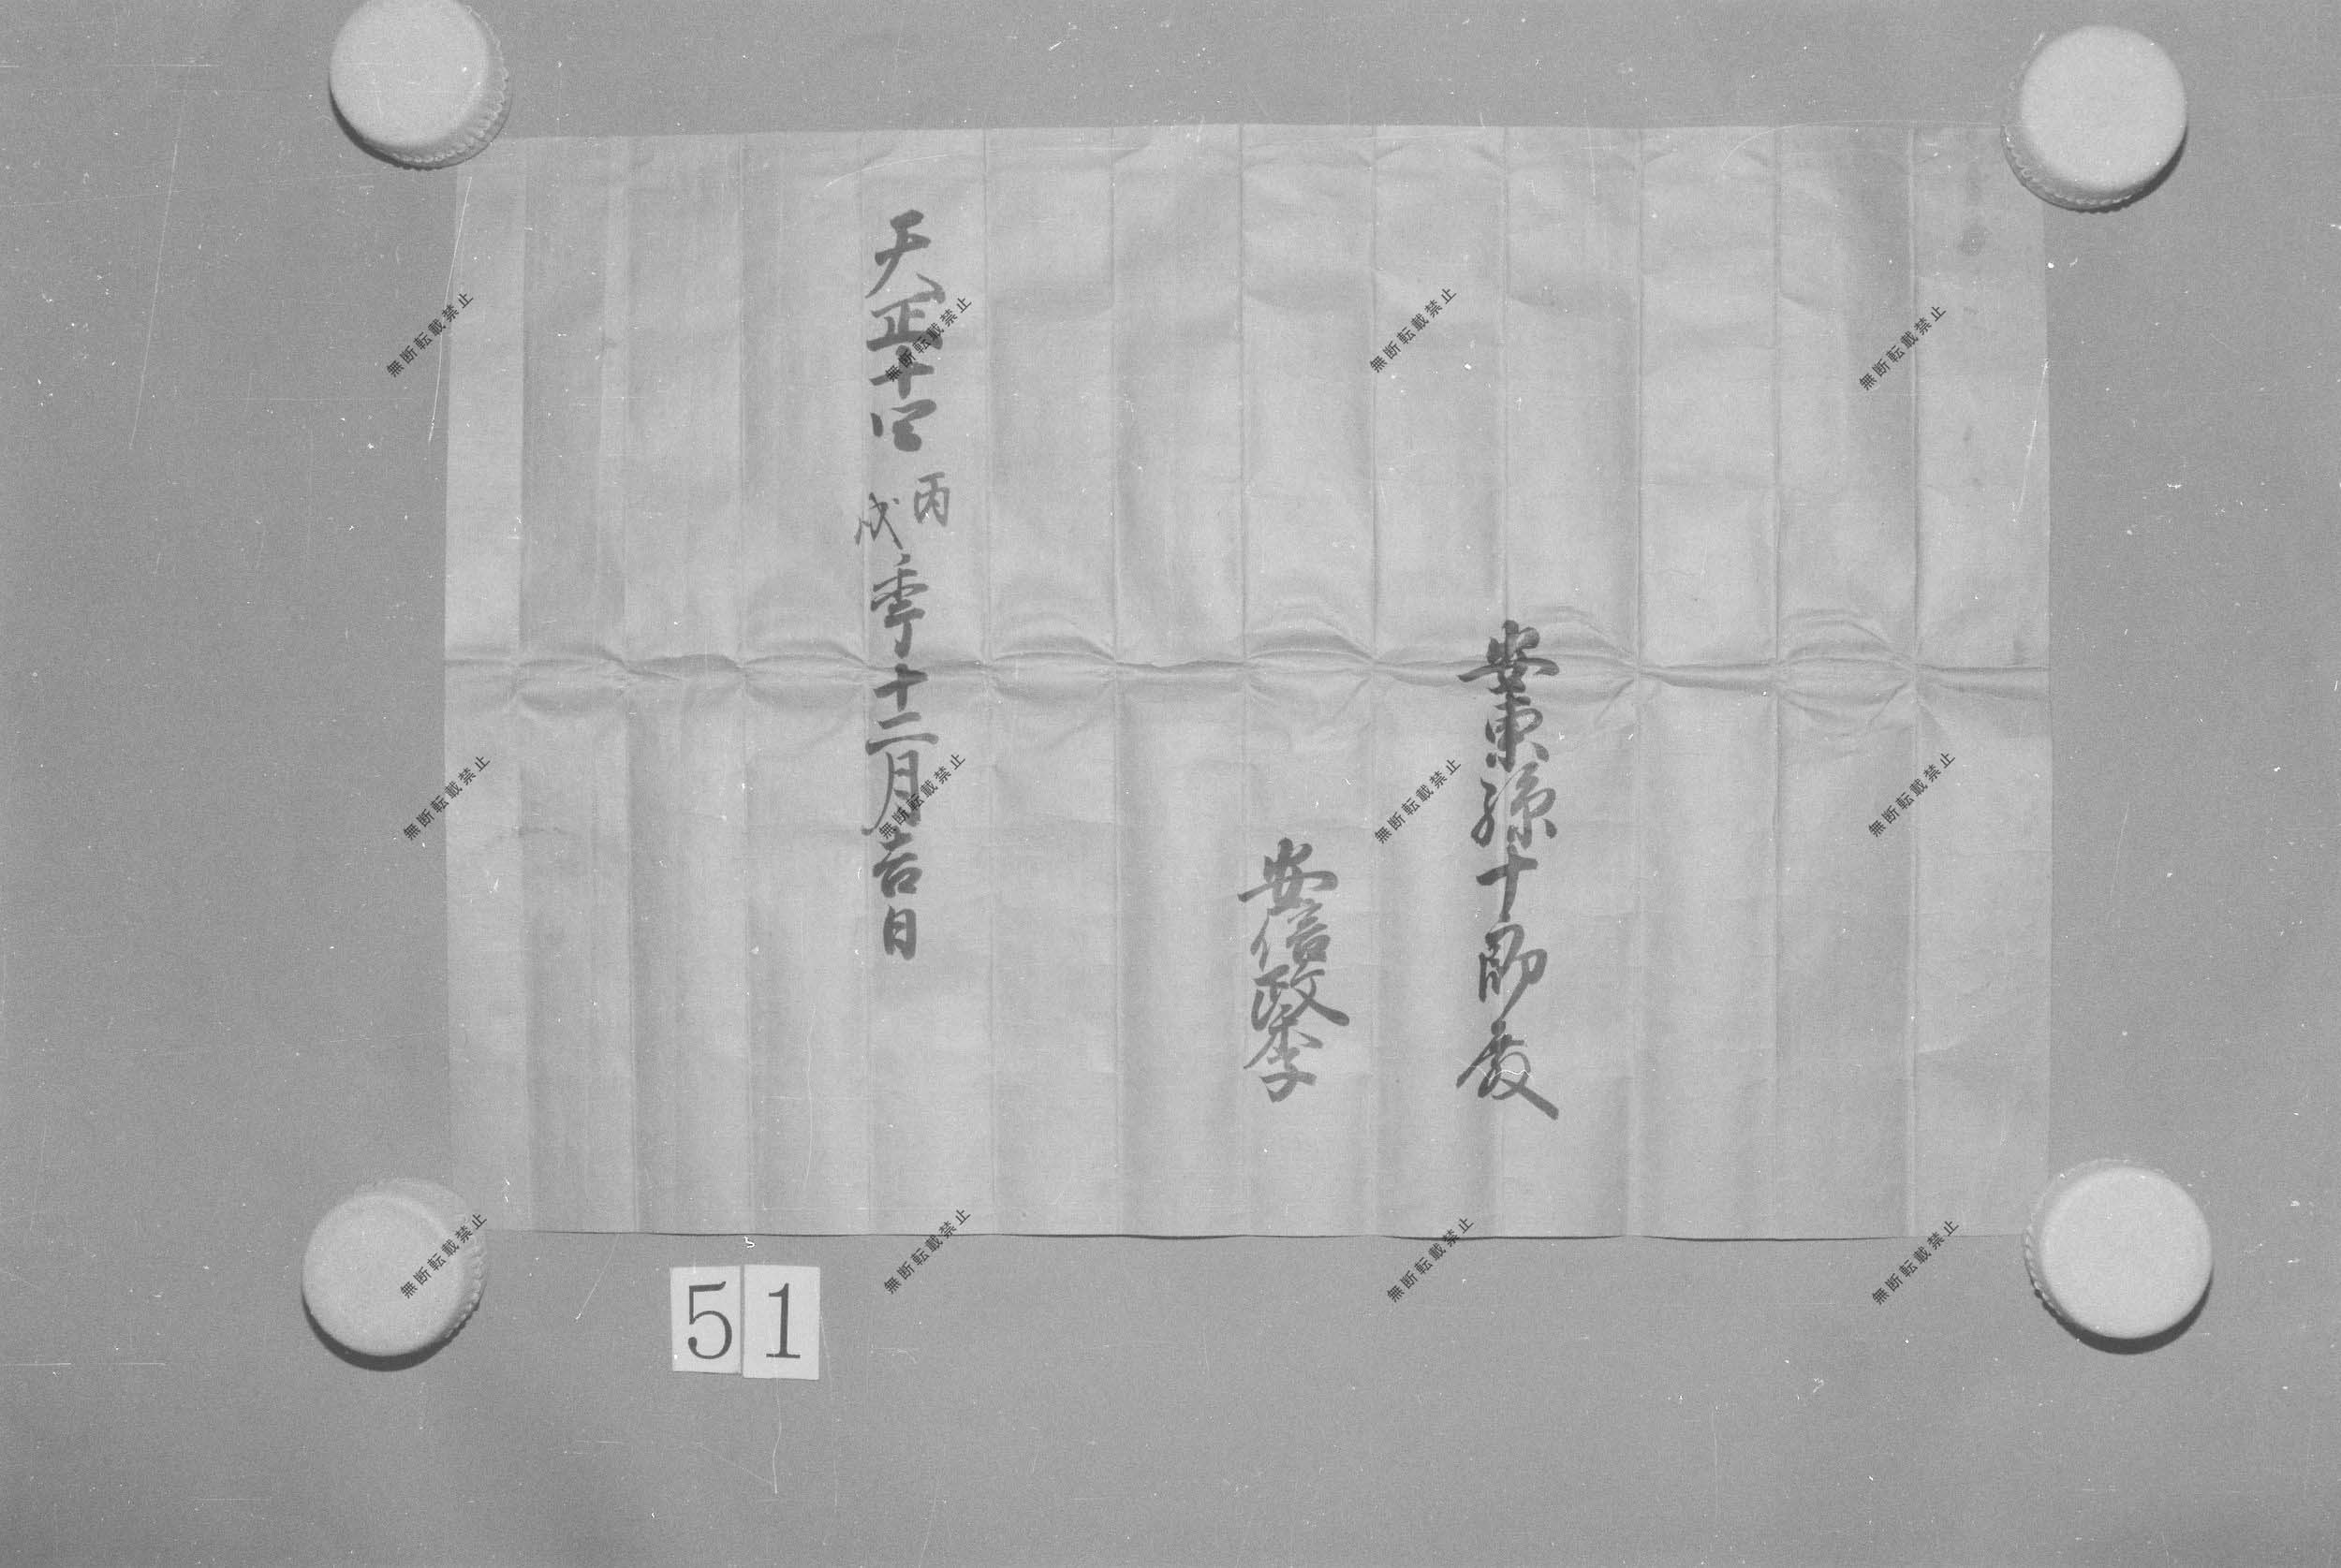 安東孫十郎殿
安倍政季
天正十四丙戌季十二月吉日
51
無断転載禁止
無断転載禁止
無断転載禁止
無断転載禁止
無断転載禁止
無断転載禁止
無断転載禁止
無断転載禁止
無断転載禁止
無断転載禁止
無断転載禁止
無断転載禁止